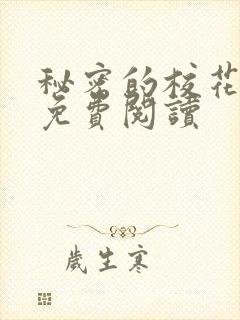 秘密的校花
免費閱讀
歲生寒